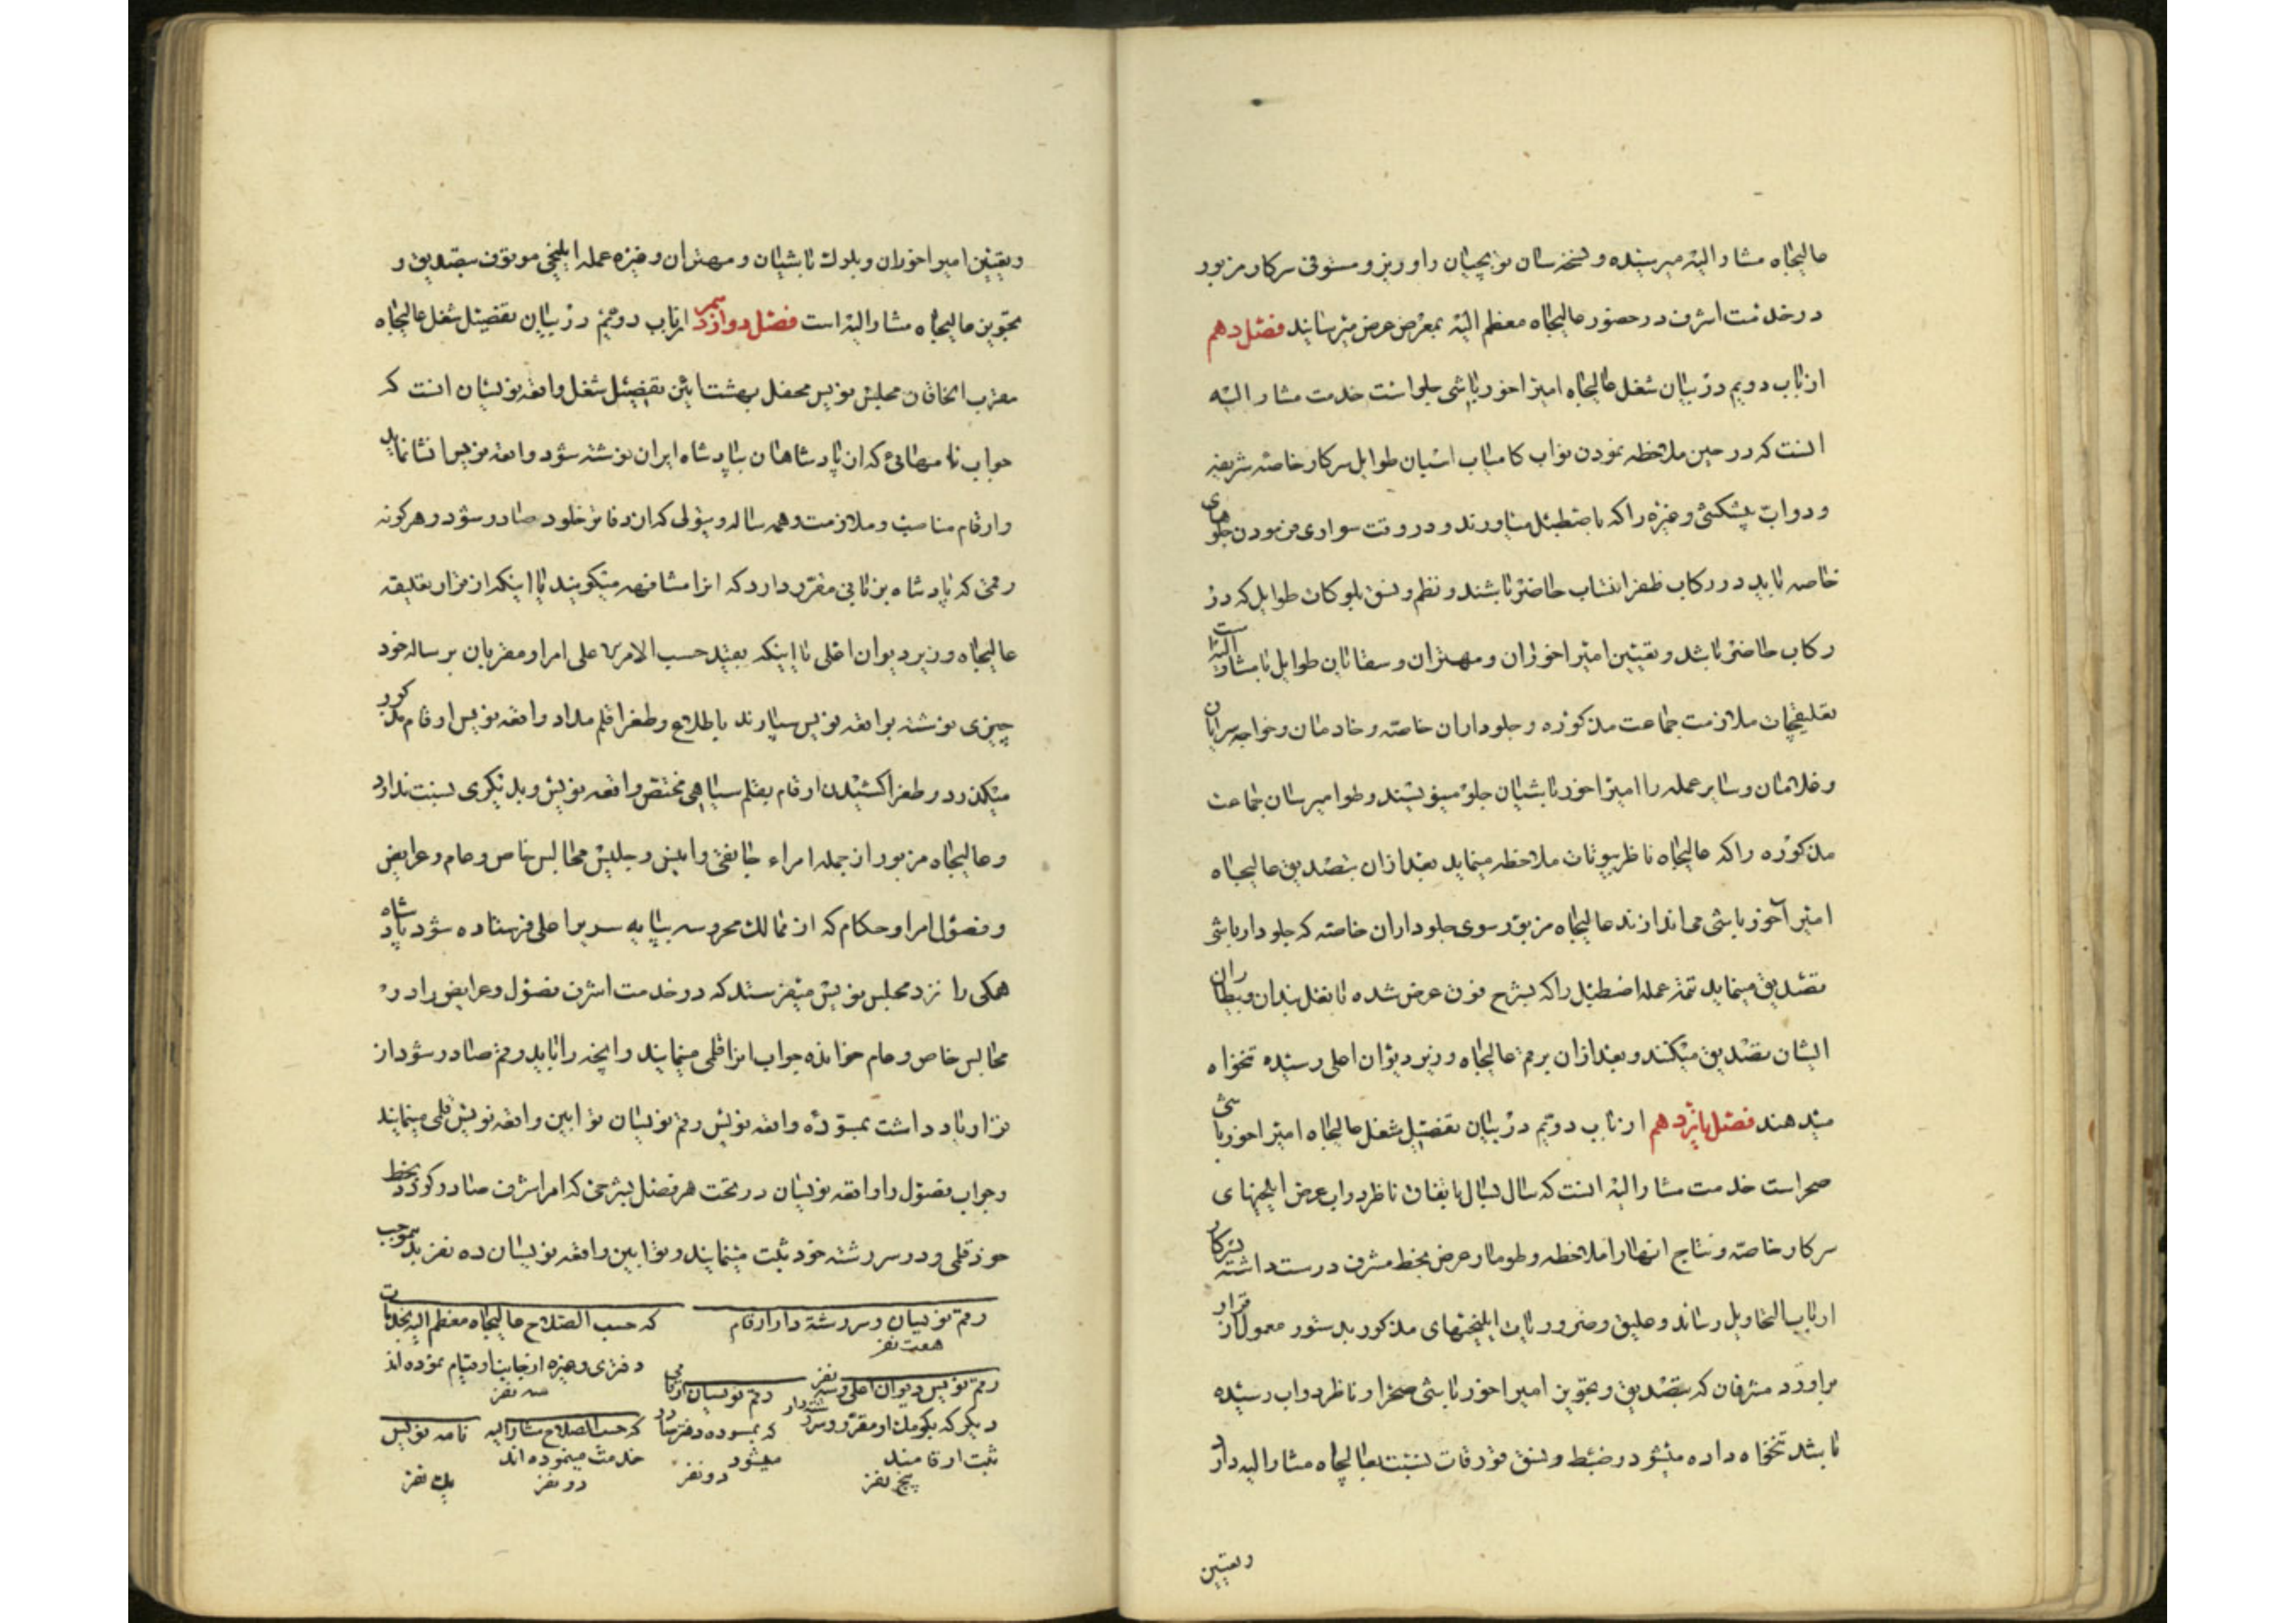 عالیجاه مشار الیه میرسیده و نسخه سان توپچیان را وزیر و مستوفی سرکار مزبور
در خدمت اشرف در حضور عالیجاه معظم الیه بمعرض عرض میرسانید فصل دهم
از باب دویم در بیان شغل عالیجاه امیر اخور باشی جلو است خدمت مشار الیه
انست که در حین ملاحظه نمودن نواب کامیاب اسبان طوایل سرکار خاصه شریفه
و دواب پیشکشی و غیره را که باصطبل میاورند و در وقت سواری فرمودن جلوهای
خاصه باید در رکاب ظفر انتساب حاضر باشند و نظم و نسق بلوکات طوایل که در
رکاب حاضر باشد و تعیین امیر اخوران و مهتران و سقایان طوایل با مشار الیه است
تعلیقچهات ملازمت جماعت مذکوره و جلوداران خاصه و خادمان و خواجه سرایان
و غلامان و سایر عمله را امیر اخور باشیان جلو مینویسند و طوامیر سان جماعت
مذکوره را که عالیجاه ناظر بیوتات ملاحظه مینماید بعد از ان بتصدیق عالیجاه
امیر آخور باشی می اندازند عالیجاه مزبور سوی جلوداران خاصه که جلودار باشی
تصدیق مینماید تتمه عمله اصطبل را که بشرح فوق عرض شده تا نعلبندان و بیطاران
ایشان تصدیق میکنند و بعد از ان برقم عالیجاه وزیر دیوان اعلی رسیده تنخواه
میدهند فصل یازدهم از باب دویم در بیان تفصیل شغل عالیجاه امیر اخور باشی
صحراست خدمت مشار الیه انست که سال بسال باتفاق ناظر دواب عرض ایلخیهای
سرکار خاصه و نتاج انها را ملاحظه و طومار عرض بخط مشرف درست داشته بسرکار
ارباب التحاویل رساند و علیق و ضروریات ایلخیهای مذکور بدستور معمول از قرار
براورد مشرفان که بتصدیق و تجویز امیر اخور باشی صحرا و ناظر دواب رسیده
باشد تنخواه داده میشود و ضبط و نسق قورقات نسبت بعالیجاه مشار الیه دارد
و تعیین
و تعیین امیر اخوران و بلوک باشیان و مهتران و غیره عمله ایلخی موقوف بتصدیق و
تجویز عالیجاه مشار الیه است فصل دوازدهم از باب دویم در بیان تفصیل شغل عالیجاه
مقرب الخاقان مجلس نویس محفل بهشت ایین تفصیل شغل واقعه نویسان انست که
جواب نامهائی که از پادشاهان بپادشاه ایران نوشته شود واقعه نویس انشا نماید
و ارقام مناصب و ملازمت و همه ساله و تیولی که از دفاتر خلود صادر شود و هر گونه
رقمی که پادشاه بزبانی مقرر دارد که انرا مشافهه میگویند یا اینکه از قرار تعلیقه
عالیجاه وزیر دیوان اعلی یا اینکه بقید حسب الامر الاعلی امرا و مقربان برساله خود
چیزی نوشته بواقعه نویس سپارند باطلاع و طغرا قلم مداد واقعه نویس ارقام مذکور
میگذرد و طغرا کشیدن ارقام بقلم سیاهی مختص واقعه نویس و بدیگری نسبت ندارد
و عالیجاه مزبور از جمله امراء جانقی و انیس و جلیس مجالس خاص و عام و عرایض
و فصول امرا و حکام که از ممالک محروسه بپایه سریر اعلی فرستاده شود پادشاه
همگی را نزد مجلس نویس میفرستد که در خدمت اشرف فصول و عرایض را در
مجالس خاص و عام خوانده جواب انرا قلمی مینمایند و انچه را باید رقم صادر شود از
قرار یاد داشت بمسوده واقعه نویس رقم نویسان توابین واقعه نویس قلمی مینمایند
و جواب فصول را واقعه نویسان در تحت هر فصل بشرحی که امر اشرف صادر گردد بخط
خود قلمی و در سررشته خود ثبت مینمایند و توابین واقعه نویسان ده نفر بدینموجب
رقم نویسان و سررشته دار ارقام
هفت نفر
که حسب الصلاح عالیجاه معظم الیه بخدمات
دفتری و غیره از جانب او قیام نموده اند
سه نفر
رقم نویس دیوان اعلی و سه نفر
دیگر که بکومک او مقرر و سررشته دار
ثبت ارقامند
پنج نفر
رقم نویسان ارقامی
که بمسوده دفتر صادر
میشود
دو نفر
که حسب الصلاح مشار الیه
خدمت مینموده اند
دو نفر
نامه نویس
یک نفر